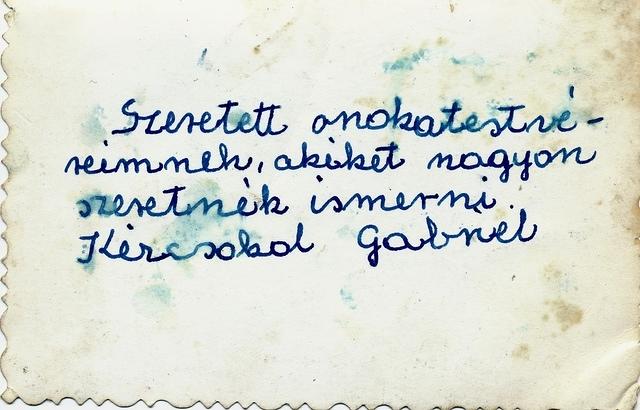 Szeretett onokatestvé-
reimnek, akiket nagyon
szeretnék ismerni.
Kércsokol Gabriel